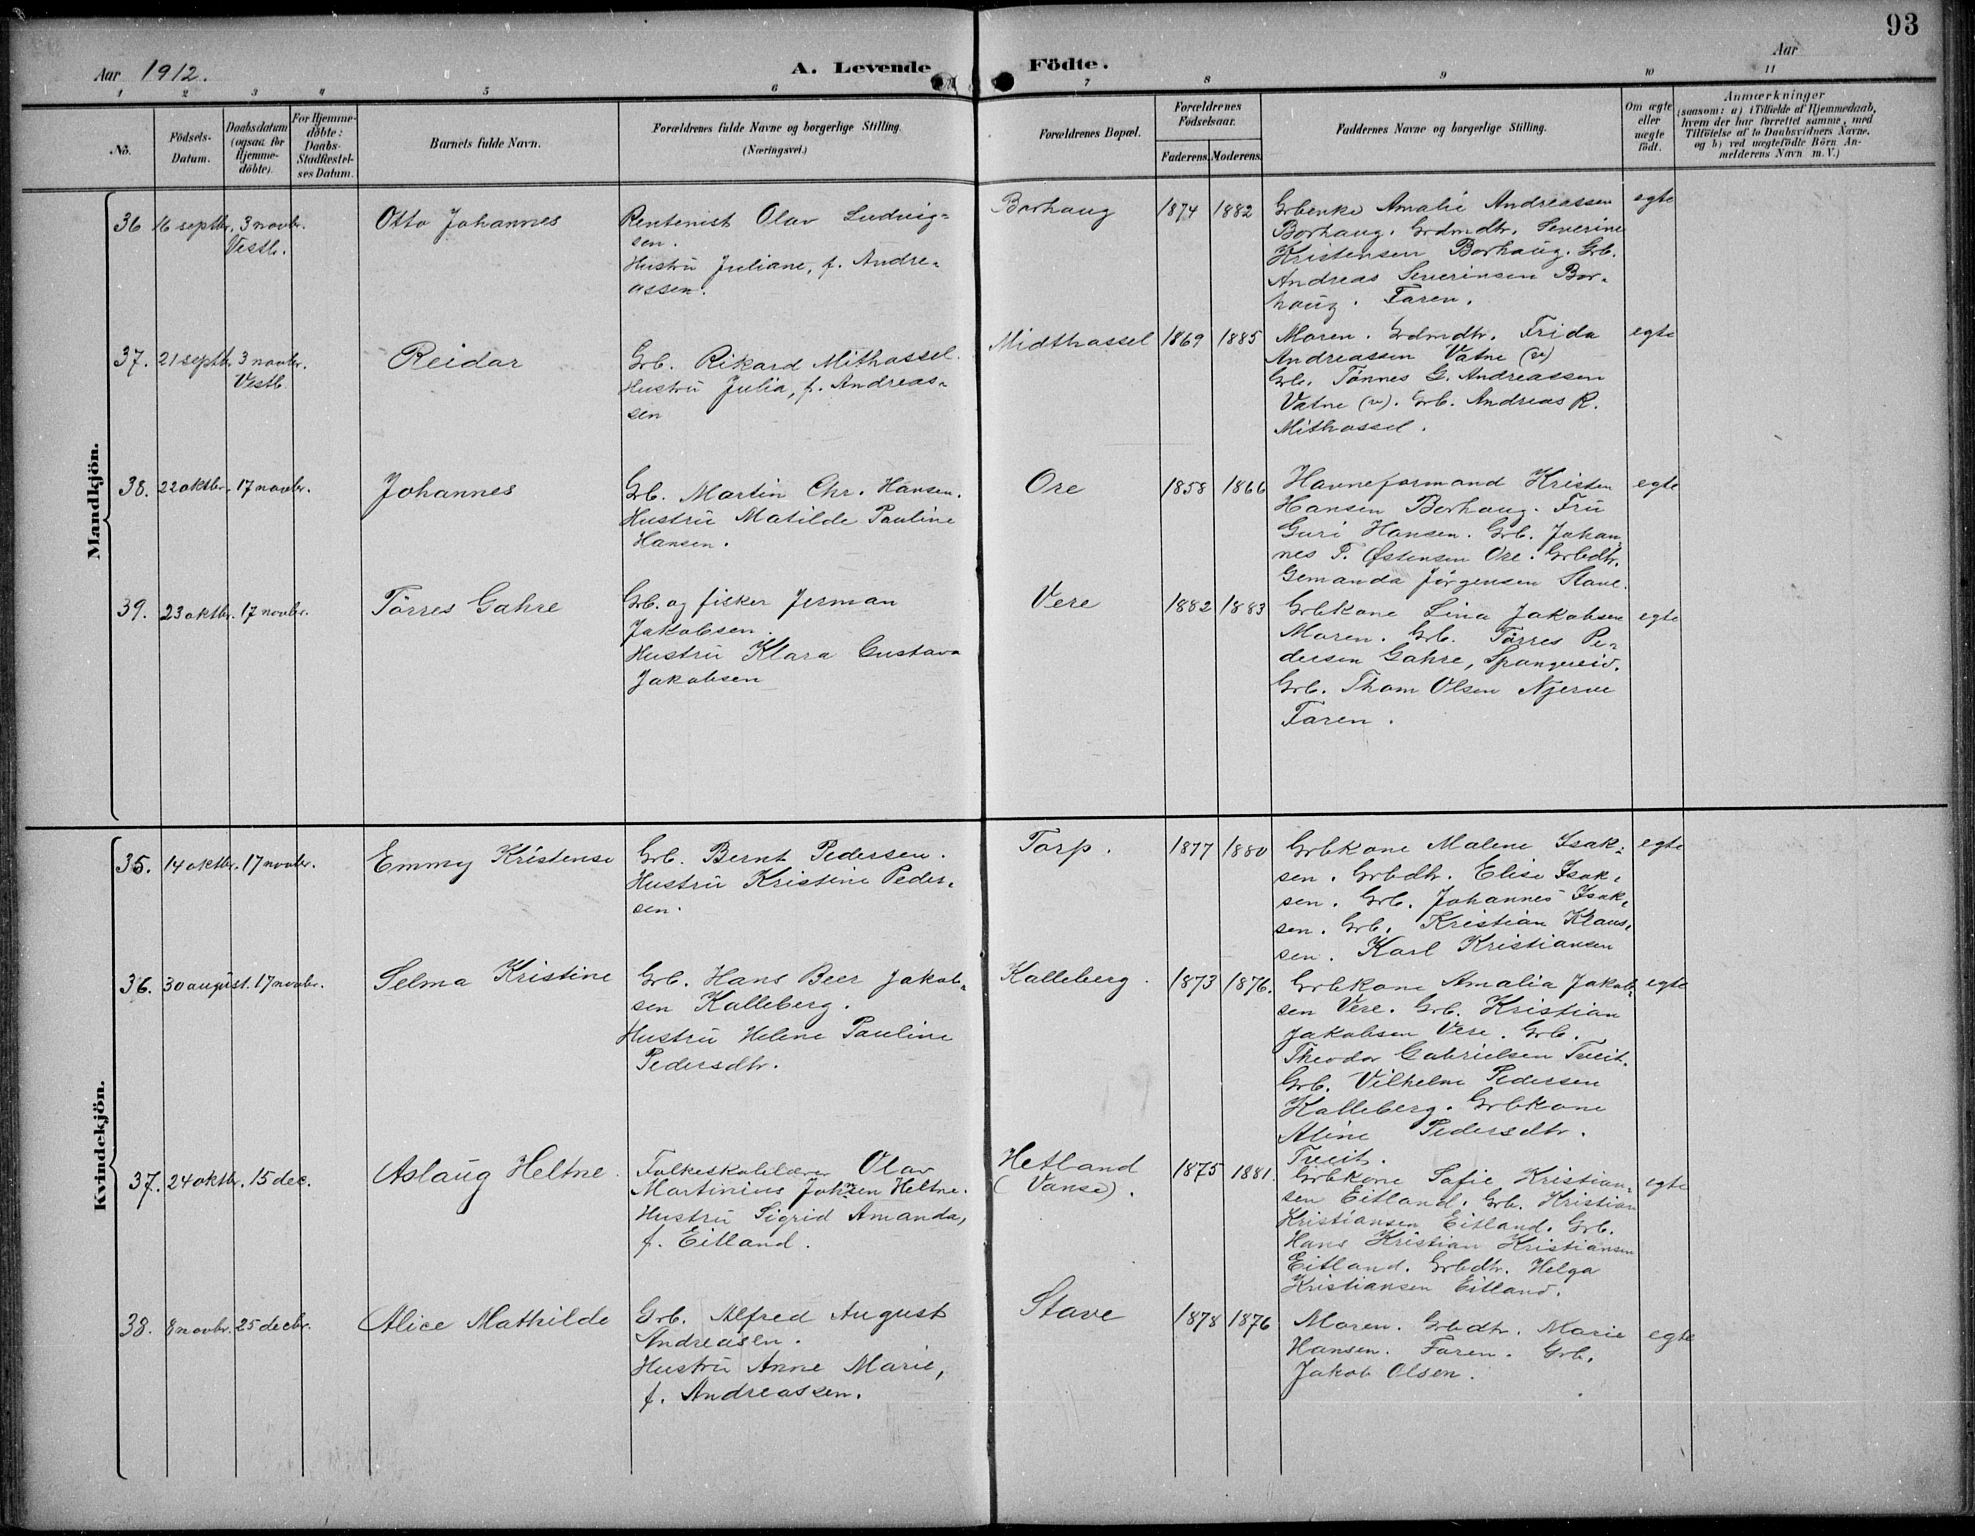 93
Aar 1912.
A. Levende
Födte.
Aar
1 2 3 4 5 6 7 8 9 10 11
No.
Födsels-
Datum.
Daabsdatum
(ogsaa for
Hjemme-
döbte).
For Hjemme-
döbte:
Daabs-
Stadfæstel-
ses Datum.
Barnets fulde Navn.
Forældrenes fulde Navne og borgerlige Stilling.
(Næringsvei.)
Forældrenes Bopæl.
Forældrenes
Födselsaar.
Faderens. Moderens.
Faddernes Navne og borgerlige Stilling.
Om ægte
eller
uægte
födt.
Anmærkninger
(saasom: a) i Tilfælde af Hjemmedaab,
hvem der har forrettet samme, med
Tilföielse af to Daabsvidners Navne,
og b) ved uægtefödte Börn An-
melderens Navn m. V.)
Mandkjön.
36 16 septbr. 3 novbr.
Vestb.
Otto Johannes
Rentenist Olav Ludvig=
sen.
Hustru Juliane, f. Andre=
assen.
Borhaug
1874 1882
Grbenke Amalie Andreassen
Borhaug. Grdmdtr. Severine
Kristensen Borhaug. Grb.
Andreas Severinsen Bor-
haug. Faren.
egte
37. 21 septb. 3 novbr.
Vestb
Reidar
Grb. Rikard Mithassel.
Hustru Julia, f. Andreas=
sen
Midthassel
1869 1885
Moren. Grdmdtr. Frida
Andreassen Vatne (v)
Grb. Tønnes G. Andreassen
Vatne (v). Grb. Andreas R.
Mithassel.
egte
38. 22 oktbr. 17 novbr.
Johannes
Grb. Martin Chr. Hansen.
Hustru Matilde Pauline
Hansen.
Ore
1858 1866
Havneformand Kristen
Hansen Borhaug. Fru
Guri Hansen. Grb. Johan=
nes P. Østensen Ore. Grbdtr.
Gemanda Jørgensen Stave.
egte
39. 23 oktbr. 17 novbr.
Tørres Gahre
Grb. og fisker Jerman
Jakobsen.
Hustru Klara Gustava
Jakobsen
Vere
1882 1883
Grbkone Lina Jakobsen
Moren. Grb. Tørres Pe=
dersen Gahre, Spangereid.
Grb. Thom Olsen Njerve
Faren.
egte
Kvindekjön.
35. 14 oktbr. 17 novbr.
Emmy Kristense
Grb. Bernt Pedersen.
Hustru Kristine Peder=
sen.
Torp.
1877 1880
Grbkone Malene Isak=
sen. Grbdtr. Elise Isak=
sen. Grb. Johannes Isak=
sen. Grb. Kristian Klaus=
sen. Karl Kristiansen
egte
36. 30 august. 17 novbr.
Selma Kristine
Grb. Hans Beer Jakob=
sen Kalleberg.
Hustru Helene Pauline
Pedersdtr.
Kalleberg.
1873 1876.
Grbkone Amalia Jakob=
sen Vere. Grb. Kristian
Jakobsen Vere. Grb.
Theodor Gabrielsen Tveit.
Grb. Vilhelm Pedersen
Kalleberg. Grbkone
Aline Pedersdtr.
Tveit.
egte
37. 24 oktbr. 15 dec.
Aslaug Heltne.
Folkeskolelærer Olav
Martinius Johnsen Heltne.
Hustru Sigrid Amanda,
f. Eitland.
Hetland
(Vanse).
1875 1881.
Grbkone Sofie Kristian=
sen Eitland. Grb. Kristian
Kristiansen Eitland. Grb.
Hans Kristian Kristiansen
Eitland. Grbdtr. Helga
Kristiansen Eitland.
egte
38. 8 novbr. 25 decbr.
Alice Mathilde
Grb. Alfred August
Andreasen.
Hustru Anne Marie,
f. Andreassen.
Stave
1878 1876
Moren. Grbdtr. Marie
Hansen. Faren. Grb.
Jakob Olsen.
egte